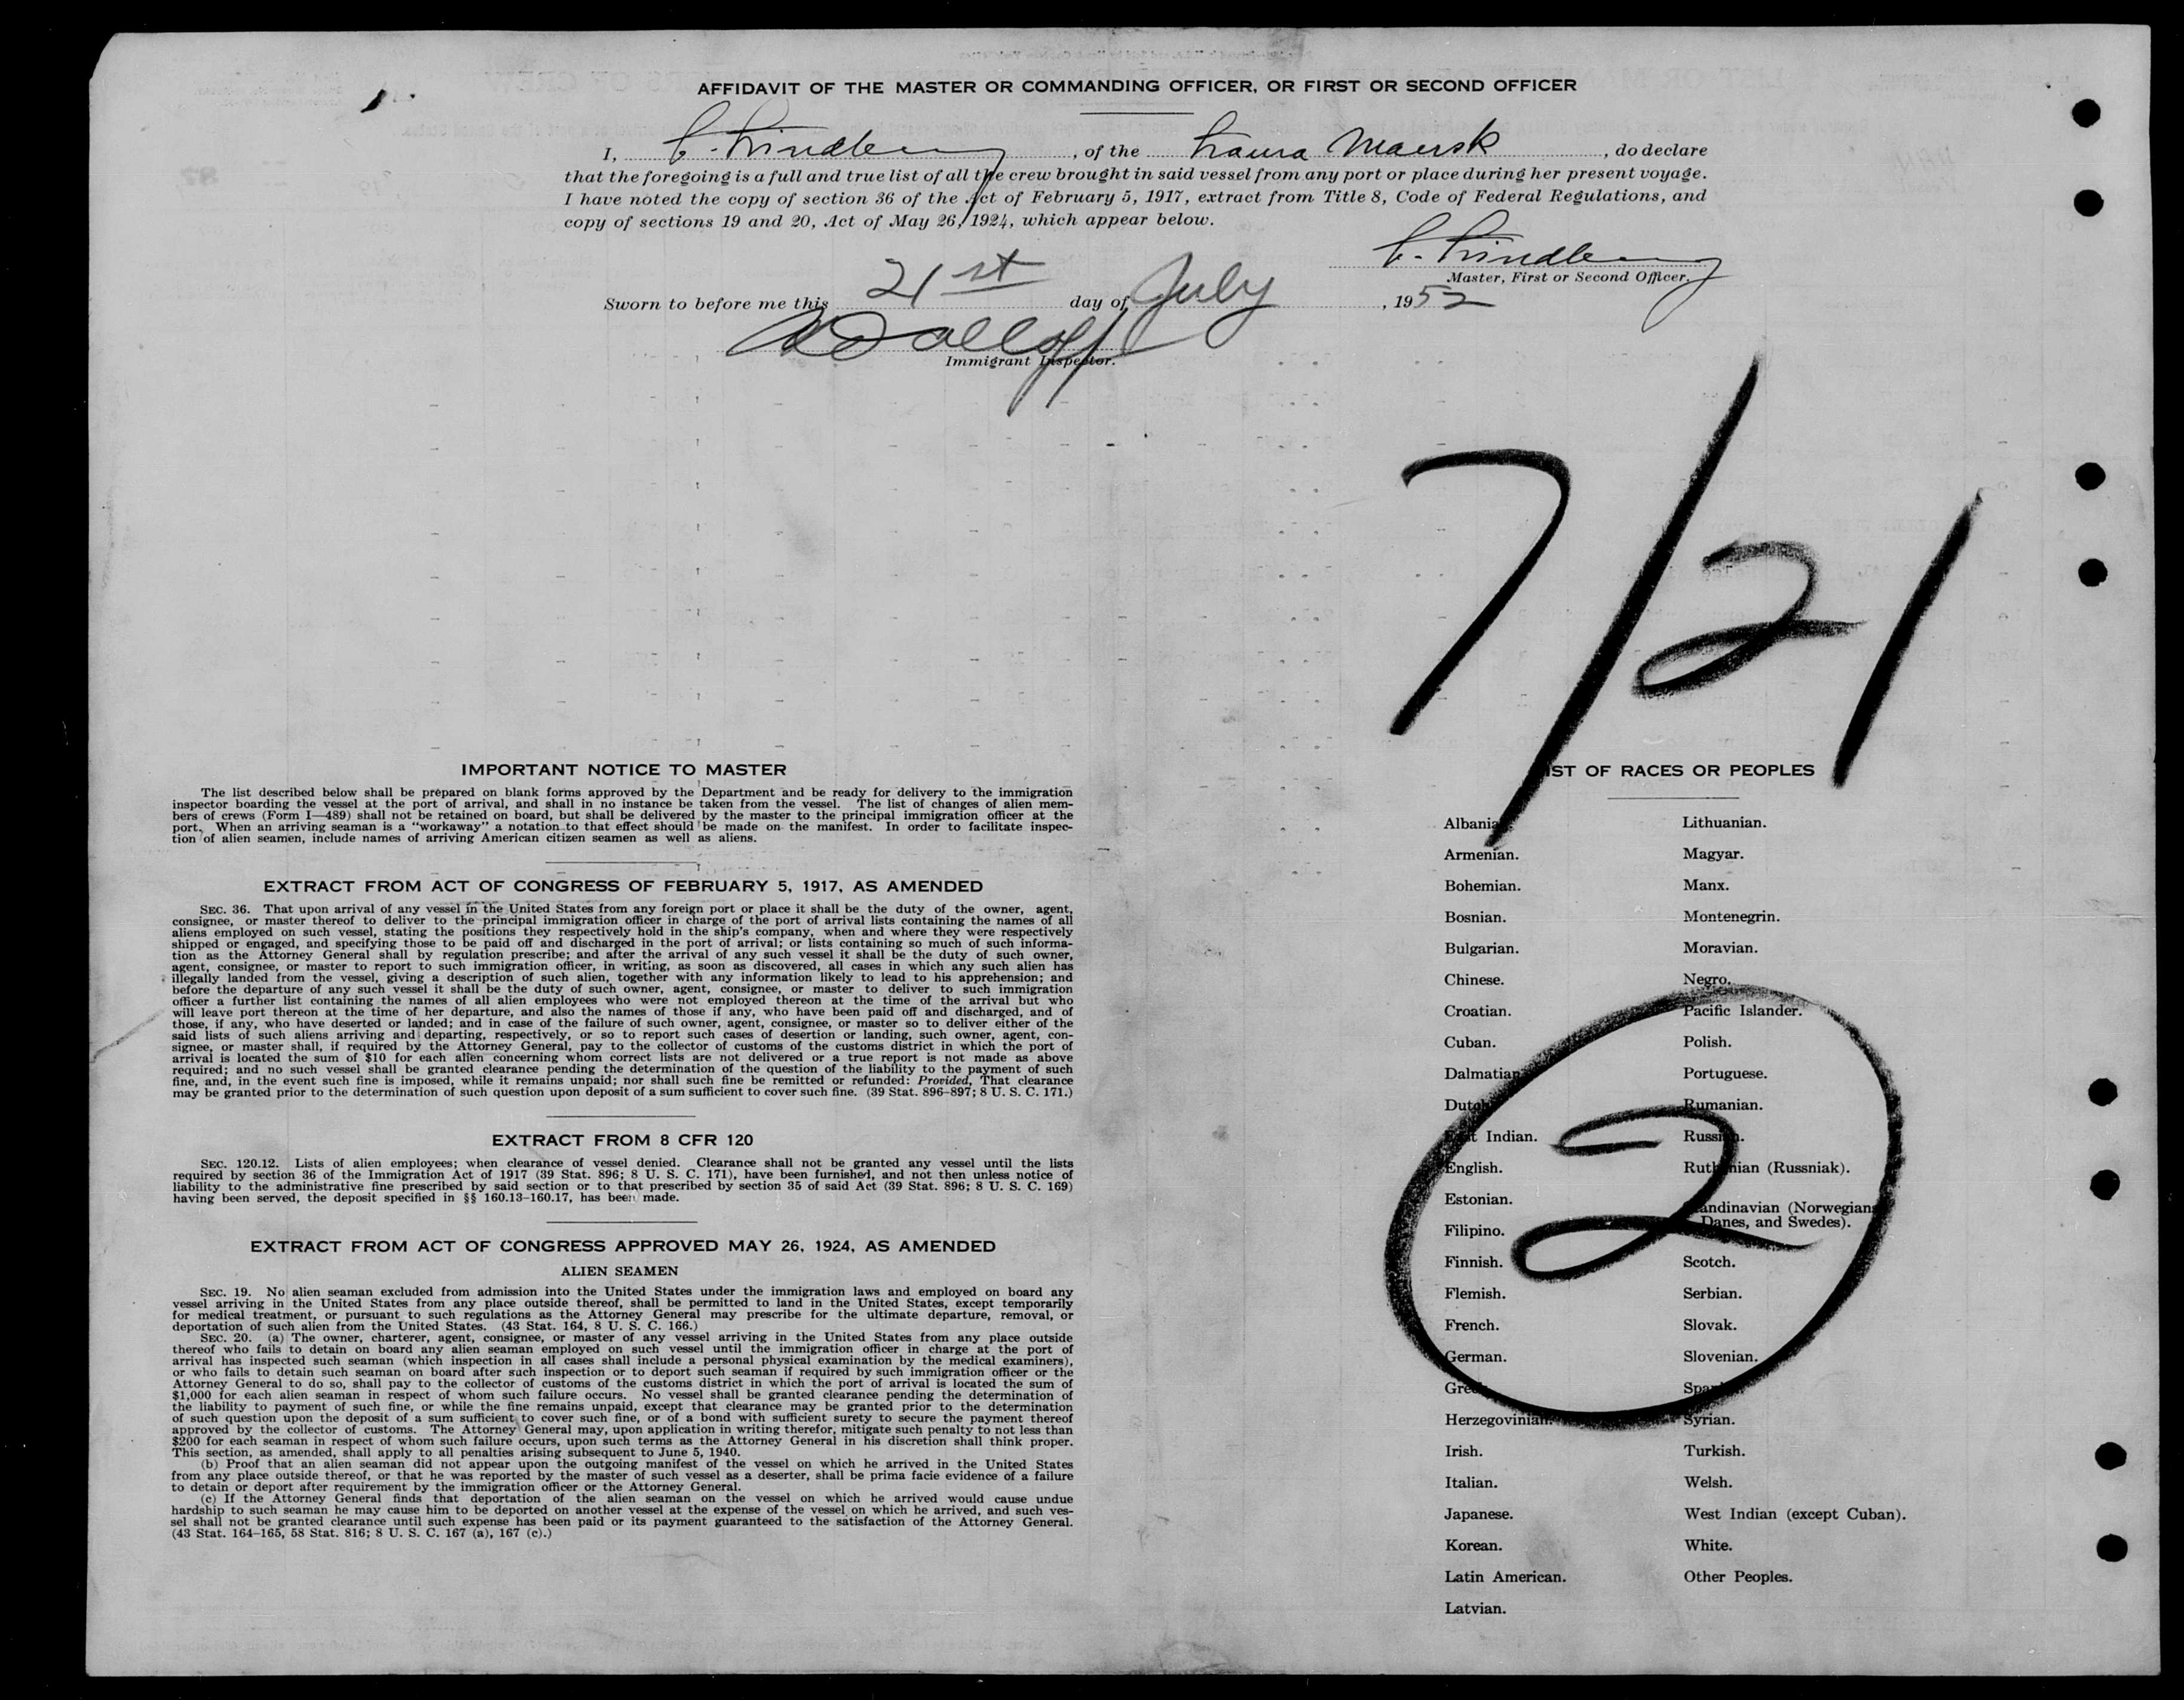 AFFIDAVIT OF THE MASTER OR COMMANDING OFFICER, OR FIRST OR SECOND OFFICER
I, C. Lindberg, of the Laura Maersk, do declare
that the foregoing is a full and true list of all the crew brought in said vessel from any port or place during her present voyage.
I have noted the copy of section 36 of the Act of February 5, 1917, extract from Title 8, Code of Federal Regulations, and
copy of sections 19 and 20, Act of May 26, 1924, which appear below.
Master, First or Second Officer.
Sworn to before me this 21st day of July, 1952
Immigrant Inspector.
7/21
IMPORTANT NOTICE TO MASTER
The list described below shall be prepared on blank forms approved by the Department and be ready for delivery to the immigration
inspector boarding the vessel at the port of arrival, and shall in no instance be taken from the vessel. The list of changes of alien mem-
bers of crews (Form I—489) shall not be retained on board, but shall be delivered by the master to the principal immigration officer at the
port. When an arriving seaman is a "workaway" a notation to that effect should be made on the manifest. In order to facilitate inspec-
tion of alien seamen, include names of arriving American citizen seamen as well as aliens.
EXTRACT FROM ACT OF CONGRESS OF FEBRUARY 5, 1917, AS AMENDED
SEC. 36. That upon arrival of any vessel in the United States from any foreign port or place it shall be the duty of the owner, agent,
consignee, or master thereof to deliver to the principal immigration officer in charge of the port of arrival lists containing the names of all
aliens employed on such vessel, stating the positions they respectively hold in the ship's company, when and where they were respectively
shipped or engaged, and specifying those to be paid off and discharged in the port of arrival; or lists containing so much of such informa-
tion as the Attorney General shall by regulation prescribe; and after the arrival of any such vessel it shall be the duty of such owner,
agent, consignee, or master to report to such immigration officer, in writing, as soon as discovered, all cases in which any such alien has
illegally landed from the vessel, giving a description of such alien, together with any information likely to lead to his apprehension; and
before the departure of any such vessel it shall be the duty of such owner, agent, consignee, or master to deliver to such immigration
officer a further list containing the names of all alien employees who were not employed thereon at the time of the arrival but who
will leave port thereon at the time of her departure, and also the names of those if any, who have been paid off and discharged, and of
those, if any, who have deserted or landed; and in case of the failure of such owner, agent, consignee, or master so to deliver either of the
said lists of such aliens arriving and departing, respectively, or so to report such cases of desertion or landing, such owner, agent, con-
signee, or master shall, if required by the Attorney General, pay to the collector of customs of the customs district in which the port of
arrival is located the sum of $10 for each alien concerning whom correct lists are not delivered or a true report is not made as above
required; and no such vessel shall be granted clearance pending the determination of the question of the liability to the payment of such
fine, and, in the event such fine is imposed, while it remains unpaid; nor shall such fine be remitted or refunded: Provided, That clearance
may be granted prior to the determination of such question upon deposit of a sum sufficient to cover such fine. (39 Stat. 896–897; 8 U. S. C. 171.)
EXTRACT FROM 8 CFR 120
SEC. 120.12. Lists of alien employees; when clearance of vessel denied. Clearance shall not be granted any vessel until the lists
required by section 36 of the Immigration Act of 1917 (39 Stat. 896; 8 U. S. C. 171), have been furnished, and not then unless notice of
liability to the administrative fine prescribed by said section or to that prescribed by section 35 of said Act (39 Stat. 896; 8 U. S. C. 169)
having been served, the deposit specified in §§ 160.13–160.17, has been made.
EXTRACT FROM ACT OF CONGRESS APPROVED MAY 26, 1924, AS AMENDED
ALIEN SEAMEN
SEC. 19. No alien seaman excluded from admission into the United States under the immigration laws and employed on board any
vessel arriving in the United States from any place outside thereof, shall be permitted to land in the United States, except temporarily
for medical treatment, or pursuant to such regulations as the Attorney General may prescribe for the ultimate departure, removal, or
deportation of such alien from the United States. (43 Stat. 164, 8 U. S. C. 166.)
SEC. 20. (a) The owner, charterer, agent, consignee, or master of any vessel arriving in the United States from any place outside
thereof who fails to detain on board any alien seaman employed on such vessel until the immigration officer in charge at the port of
arrival has inspected such seaman (which inspection in all cases shall include a personal physical examination by the medical examiners),
or who fails to detain such seaman on board after such inspection or to deport such seaman if required by such immigration officer or the
Attorney General to do so, shall pay to the collector of customs of the customs district in which the port of arrival is located the sum of
$1,000 for each alien seaman in respect of whom such failure occurs. No vessel shall be granted clearance pending the determination of
the liability to payment of such fine, or while the fine remains unpaid, except that clearance may be granted prior to the determination
of such question upon the deposit of a sum sufficient to cover such fine, or of a bond with sufficient surety to secure the payment thereof
approved by the collector of customs. The Attorney General may, upon application in writing therefor, mitigate such penalty to not less than
$200 for each seaman in respect of whom such failure occurs, upon such terms as the Attorney General in his discretion shall think proper.
This section, as amended, shall apply to all penalties arising subsequent to June 5, 1940.
(b) Proof that an alien seaman did not appear upon the outgoing manifest of the vessel on which he arrived in the United States
from any place outside thereof, or that he was reported by the master of such vessel as a deserter, shall be prima facie evidence of a failure
to detain or deport after requirement by the immigration officer or the Attorney General.
(c) If the Attorney General finds that deportation of the alien seaman on the vessel on which he arrived would cause undue
hardship to such seaman he may cause him to be deported on another vessel at the expense of the vessel on which he arrived, and such ves-
sel shall not be granted clearance until such expense has been paid or its payment guaranteed to the satisfaction of the Attorney General.
(43 Stat. 164–165, 58 Stat. 816; 8 U. S. C. 167 (a), 167 (c).)
LIST OF RACES OR PEOPLES
Albanian.
Armenian.
Bohemian.
Bosnian.
Bulgarian.
Chinese.
Croatian.
Cuban.
Dalmatian.
Dutch.
East Indian.
English.
Estonian.
Filipino.
Finnish.
Flemish.
French.
German.
Greek.
Herzegovinian.
Irish.
Italian.
Japanese.
Korean.
Latin American.
Latvian.
Lithuanian.
Magyar.
Manx.
Montenegrin.
Moravian.
Negro.
Pacific Islander.
Polish.
Portuguese.
Rumanian.
Russian.
Ruthenian (Russniak).
Scandinavian (Norwegians,
Danes, and Swedes).
Scotch.
Serbian.
Slovak.
Slovenian.
Spanish.
Syrian.
Turkish.
Welsh.
West Indian (except Cuban).
White.
Other Peoples.
2